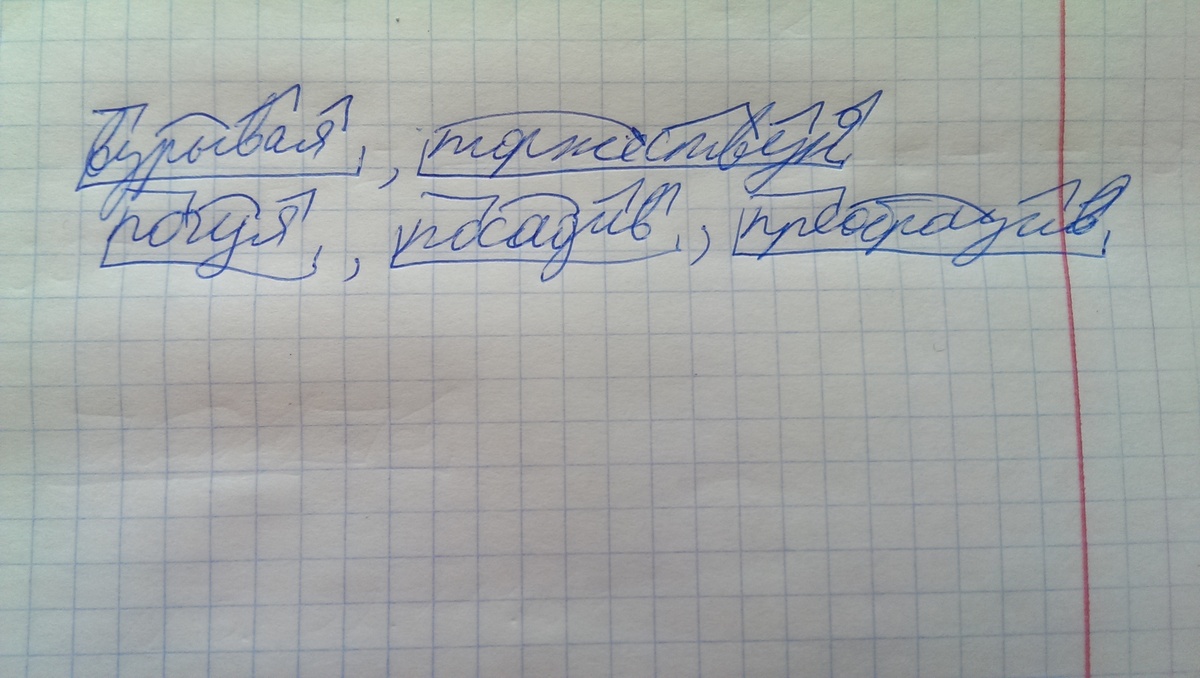 взрывая, торжествуя
почуя, посадив, преобразив